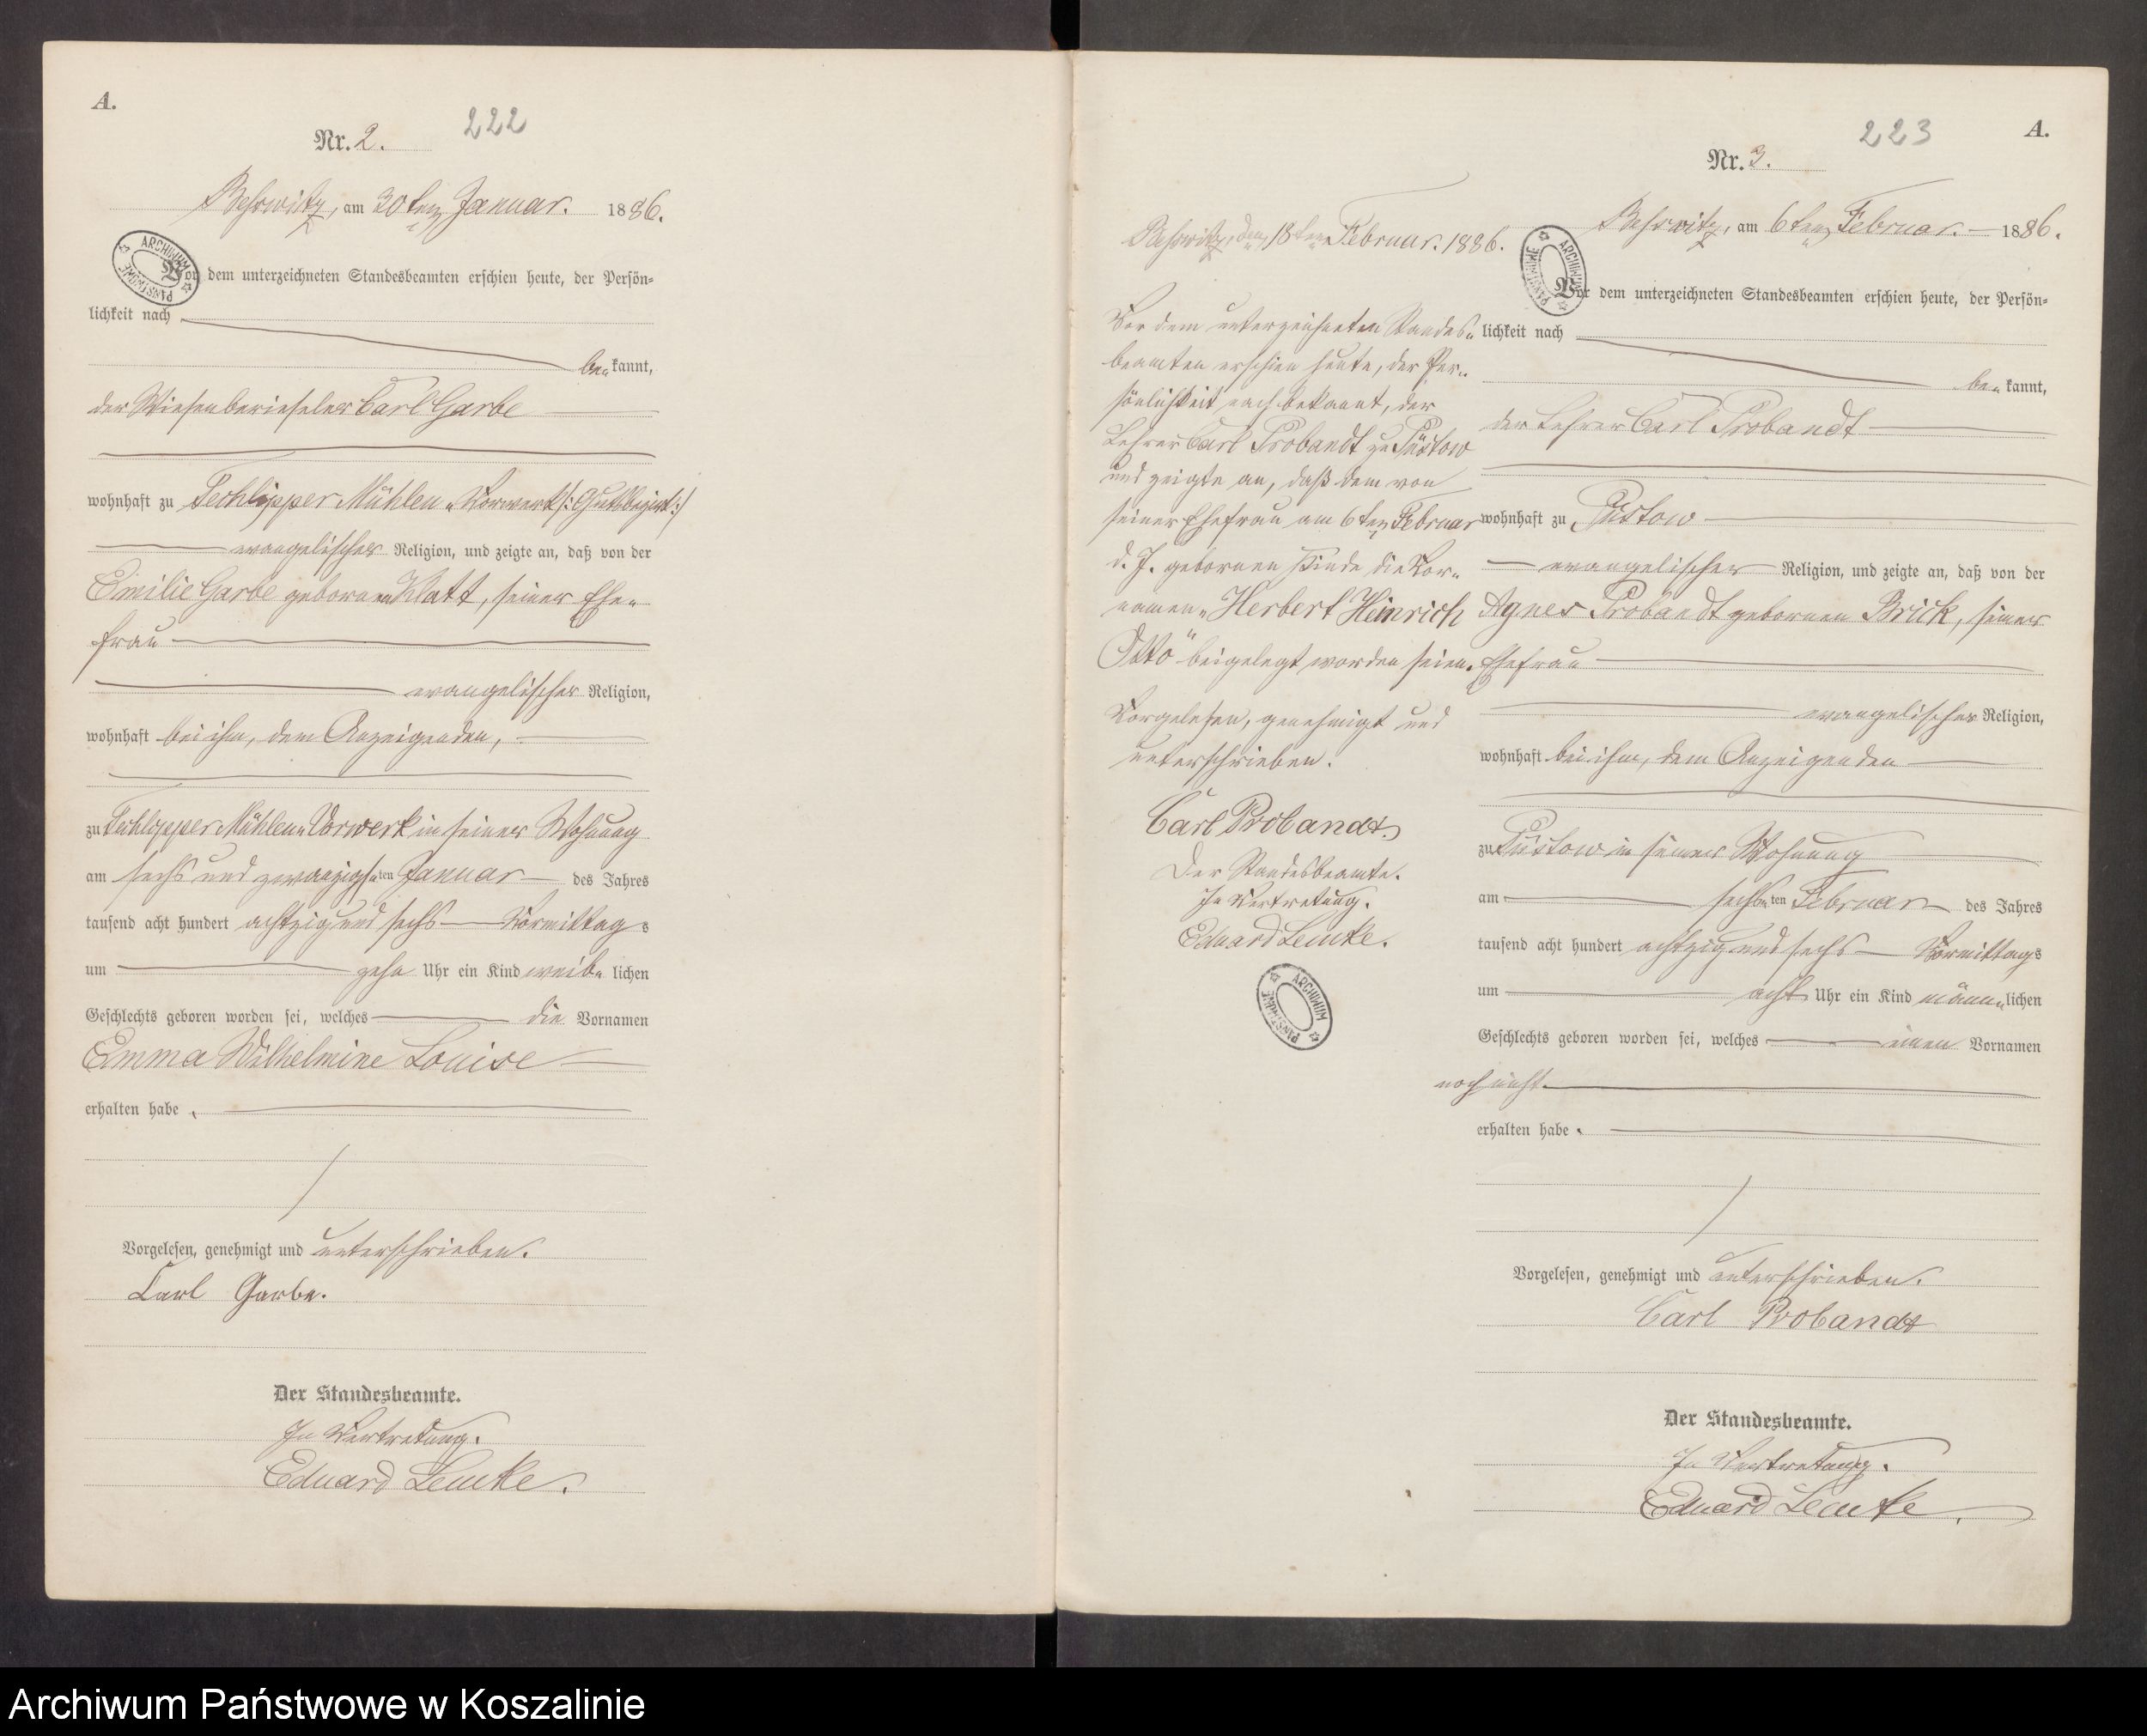 A.
Nr. 2.
222
Behrwitz, am 30ten Januar. 1886.
ARCHIWUM PAŃSTWOWE
Vor dem unterzeichneten Standesbeamten erschien heute, der Persön-
lichkeit nach
be„kannt,
der Wiesenberieseler Carl Garbe
wohnhaft zu Techlipper Mühlen„Vorwerk /:Gutsbezirk:/
evangelischer Religion, und zeigte an, daß von der
Emilie Garbe gebornen Klatt, seiner Ehe„
frau
evangelischer Religion,
wohnhaft bei ihm, dem Anzeigenden,
zu Techlipper Mühlen„Vorwerk in seiner Wohnung
am sechs und zwanzigsten Januar des Jahres
tausend acht hundert achtzig und sechs Vormittags
um zehn Uhr ein Kind weib„lichen
Geschlechts geboren worden sei, welches die Vornamen
Emma Wilhelmine Louise
erhalten habe.
Vorgelesen, genehmigt und unterschrieben.
Carl Garbe.
Der Standesbeamte.
In Vertretung.
Eduard Lemke.
223
A.
Nr. 3.
Behrwitz, am 6ten Februar. 1886.
ARCHIWUM PAŃSTWOWE
Vor dem unterzeichneten Standesbeamten erschien heute, der Persön-
lichkeit nach
be„kannt,
der Lehrer Carl Probandt
wohnhaft zu Püstow
evangelischer Religion, und zeigte an, daß von der
Agnes Probandt gebornen Brick, seiner
Ehefrau
evangelischer Religion,
wohnhaft bei ihm, dem Anzeigenden
zu Püstow in seiner Wohnung
am sechsten Februar des Jahres
tausend acht hundert achtzig und sechs Vormittags
um acht Uhr ein Kind männ„lichen
Geschlechts geboren worden sei, welches einen Vornamen
noch nicht
erhalten habe.
Vorgelesen, genehmigt und unterschrieben.
Carl Probandt
Der Standesbeamte.
In Vertretung.
Eduard Lemke.
Behrwitz, den 18ten Februar. 1886.
Vor dem unterzeichneten Standes„
beamten erschien heute, der Per„
sönlichkeit nach bekannt, der
Lehrer Carl Probandt zu Püstow
und zeigte an, daß dem von
seiner Ehefrau am 6ten Februar
d. J. gebornen Kinde die Vor„
namen „Herbert Heinrich
Otto" beigelegt worden seien.
Vorgelesen, genehmigt und
unterschrieben.
Carl Probandt
Der Standesbeamte.
In Vertretung.
Eduard Lemke.
ARCHIWUM PAŃSTWOWE
Archiwum Państwowe w Koszalinie